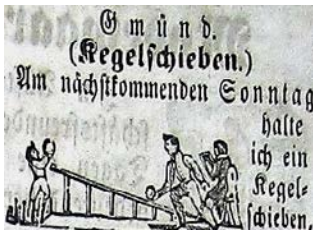 Gmünd.
(Kegelschieben.)
Am nächstkommenden Sonntag
halte
ich ein
Kegel=
schieben,